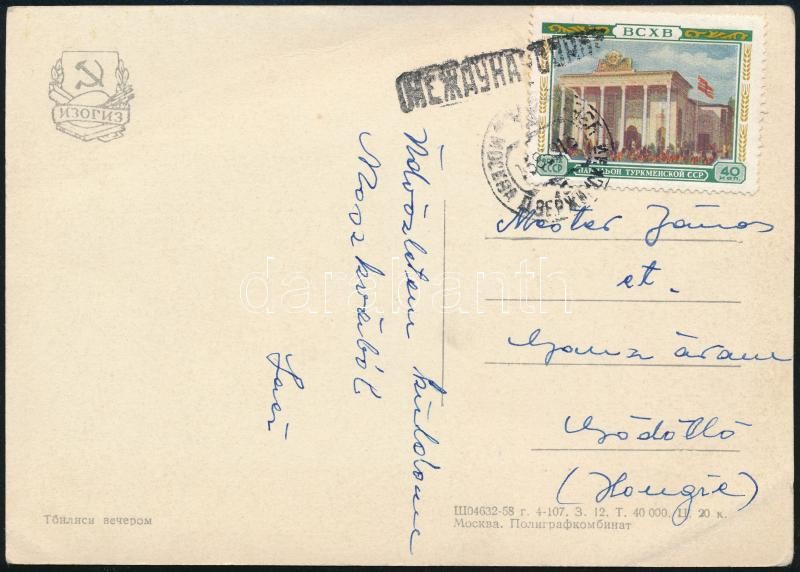 ИЗОГИЗ
МЕЖДУНАРОДНОЕ
ВСХВ
ПАВИЛЬОН ТУРКМЕНСКОЙ ССР
40
коп.
МОСКВА
Üdvözletem küldöm
Moszkvából
Laci
Mester János
et.
Ganz áram
Gödöllő
(Hongrie)
darabanth
Тбилиси вечером
Ш04632-58 г. 4-107. З. 12. Т. 40 000. Ц. 20 к.
Москва. Полиграфкомбинат